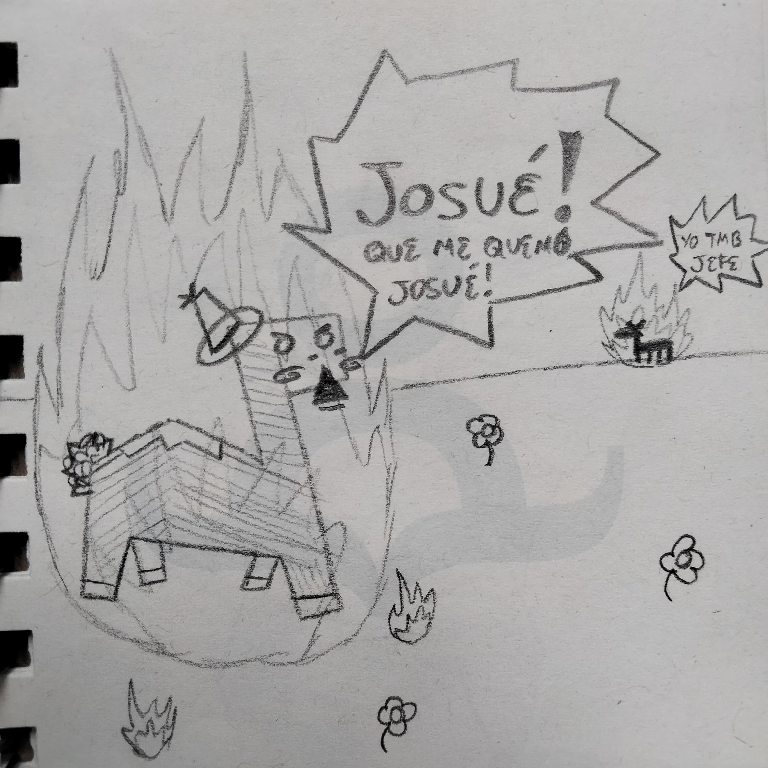 JOSUÉ!
QUE ME QUEMO
JOSUÉ!
YO TMB
JEFE